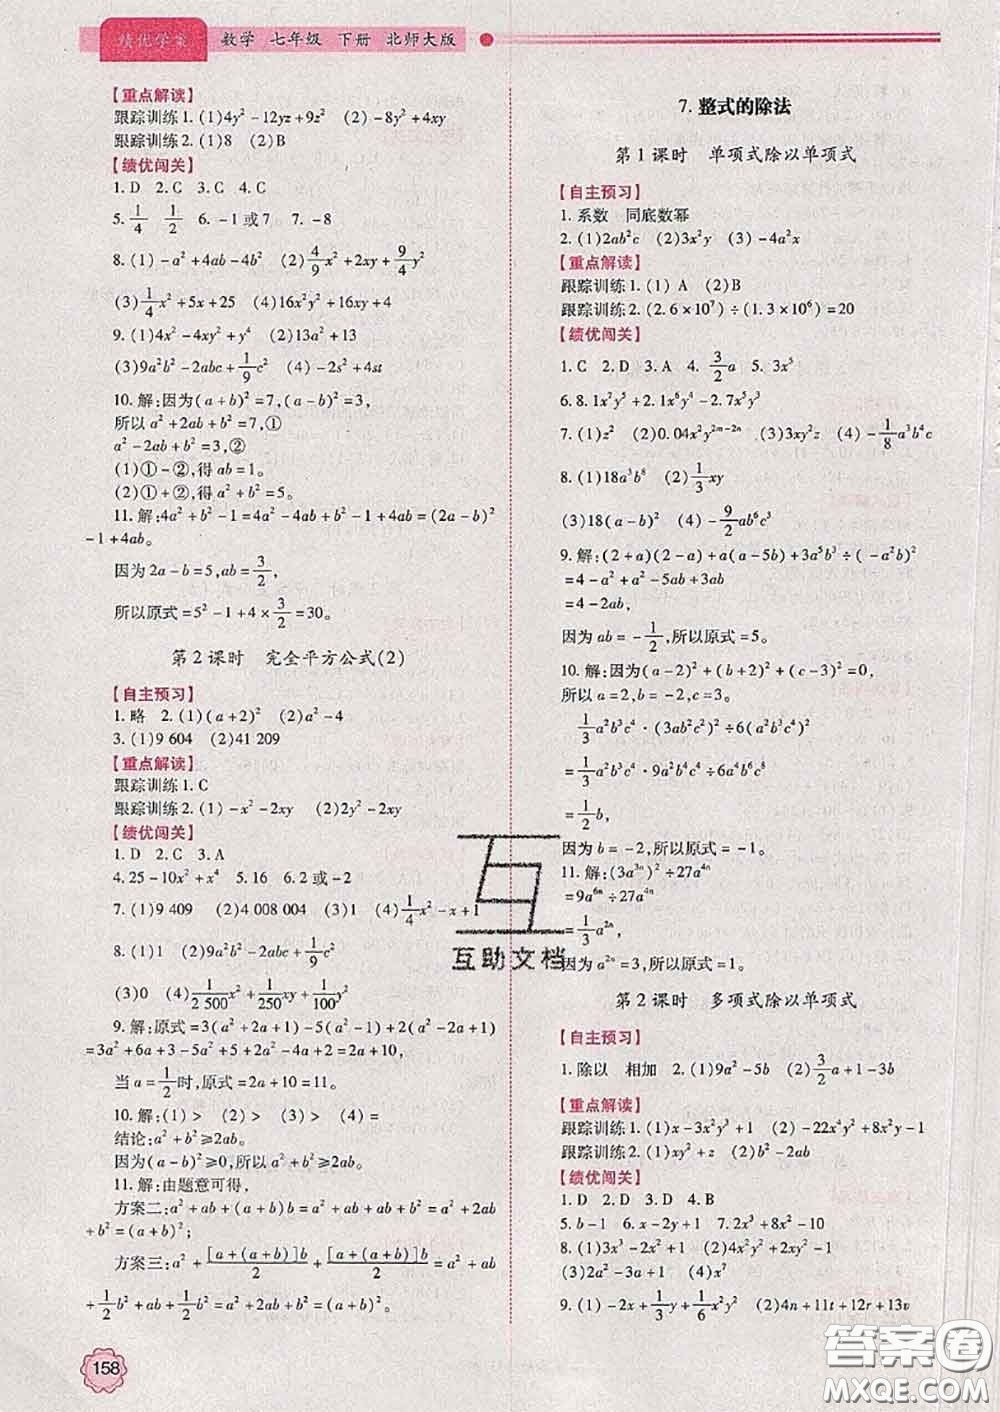 绩优学案 数学 七年级 下册 北师大版
【重点解读】
跟踪训练1. (1)4y²-12yz+9z² (2)-8y²+4xy
跟踪训练2. (1)8 (2)B
【绩优闯关】
1. D 2. C 3. C 4. C
5. 1/4 1/2 6. -1或7 7. -8
8. (1)-a²+4ab-4b² (2)4/9x²+2xy+9/4y²
(3)1/4x²+5x+25 (4)16x²y²+16xy+4
9. (1)4x²-4xy²+y⁴ (2)13a²+13
(3)9a²b²-2abc+1/9c² (4)-2s²+4st
10. 解:因为(a+b)²=7,(a-b)²=3,
所以a²+2ab+b²=7,①
a²-2ab+b²=3,②
(1)①-②,得ab=1。
(2)①+②,得a²+b²=5。
11. 解:4a²+b²-1=4a²-4ab+b²-1+4ab=(2a-b)²
-1+4ab。
因为2a-b=5,ab=3/2,
所以原式=5²-1+4×3/2=30。
第2课时 完全平方公式(2)
【自主预习】
1. 略 2. (1)(a+2)² (2)a²-4
3. (1)9 604 (2)41 209
【重点解读】
跟踪训练1. C
跟踪训练2. (1)-x²-2xy (2)2y²-2xy
【绩优闯关】
1. D 2. C 3. A
4. 25-10x²+x⁴ 5. 16 6. 2或-2
7. (1)9 409 (2)4 008 004 (3)1 (4)1/4x²-x+1
8. (1)1 (2)9a²b²-2abc+1/9c²
(3)0 (4)1/2 500x²+1/250xy+1/100y²
9. 解:原式=3(a²+2a+1)-5(a²-1)+2(a²-2a+1)
=3a²+6a+3-5a²+5+2a²-4a+2=2a+10,
当a=1/2时,原式=2a+10=11。
10. 解:(1)> (2)> (3)> (4)=
结论:a²+b²≥2ab。
因为(a-b)²≥0,所以a²+b²≥2ab。
11. 解:由题意可得,
方案二:a²+ab+(a+b)b=a²+ab+ab+b²=a²+2ab
+b²=(a+b)²;
方案三:a²+[a+(a+b)]b/2+[a+(a+b)]b/2=a²+ab
+1/2b²+ab+1/2b²=a²+2ab+b²=(a+b)²。
158
7. 整式的除法
第1课时 单项式除以单项式
【自主预习】
1. 系数 同底数幂
2. (1)2ab²c (2)3x²y (3)-4a²x
【重点解读】
跟踪训练1. (1) A (2)B
跟踪训练2. (2.6×10⁷)÷(1.3×10⁶)=20
【绩优闯关】
1. C 2. D 3. A 4. 3/2a 5. 3x⁵
6. 8.1x²y⁵+2.1x⁶y⁴-2.7x⁵y³
7. (1)z² (2)0.04x²y²ᵐ⁻²ⁿ (3)3xy²z (4)-1/8a³b⁴c
8. (1)18a³b⁸ (2)1/3xy
(3)18(a-b)² (4)-9/2ab⁶c³
9. 解:(2+a)(2-a)+a(a-5b)+3a⁵b³÷(-a²b)²
=4-a²+a²-5ab+3ab
=4-2ab,
因为ab=-1/2,所以原式=5。
10. 解:因为(a-2)²+(b+2)²+(c-3)²=0,
所以a=2,b=-2,c=3。
1/3a²b³c⁴·(3a²bc²)²÷6(a²b³c⁴)²
=1/3a²b³c⁴·9a⁴b²c⁴÷6a⁴b⁶c⁸
=1/2b,
因为b=-2,所以原式=-1。
11. 解:(3a³ⁿ)²÷27a⁴ⁿ
=9a⁶ⁿ÷27a⁴ⁿ
=1/3a²ⁿ,
因为a²ⁿ=3,所以原式=1。
第2课时 多项式除以单项式
【自主预习】
1. 除以 相加 2. (1)9a²-5b (2)3/2a+1-3b
【重点解读】
跟踪训练1. (1)x-3x²y³+1 (2)-22x⁴y²+8x²y-1
跟踪训练2. (1)xy²+z (2)b²-2ab
【绩优闯关】
1. D 2. D 3. D 4. B
5. b-1 6. x-2y+1 7. 2x³+8x²-10
8. (1)3x³-2x²+1 (2)4x²y²+2xy-1
(3)2a²-3a+1 (4)x⁷
9. (1)-2x+1/3y+1/6x²y² (2)4n+11t+12r+13v
互助文档
答案圈
MXQE.COM